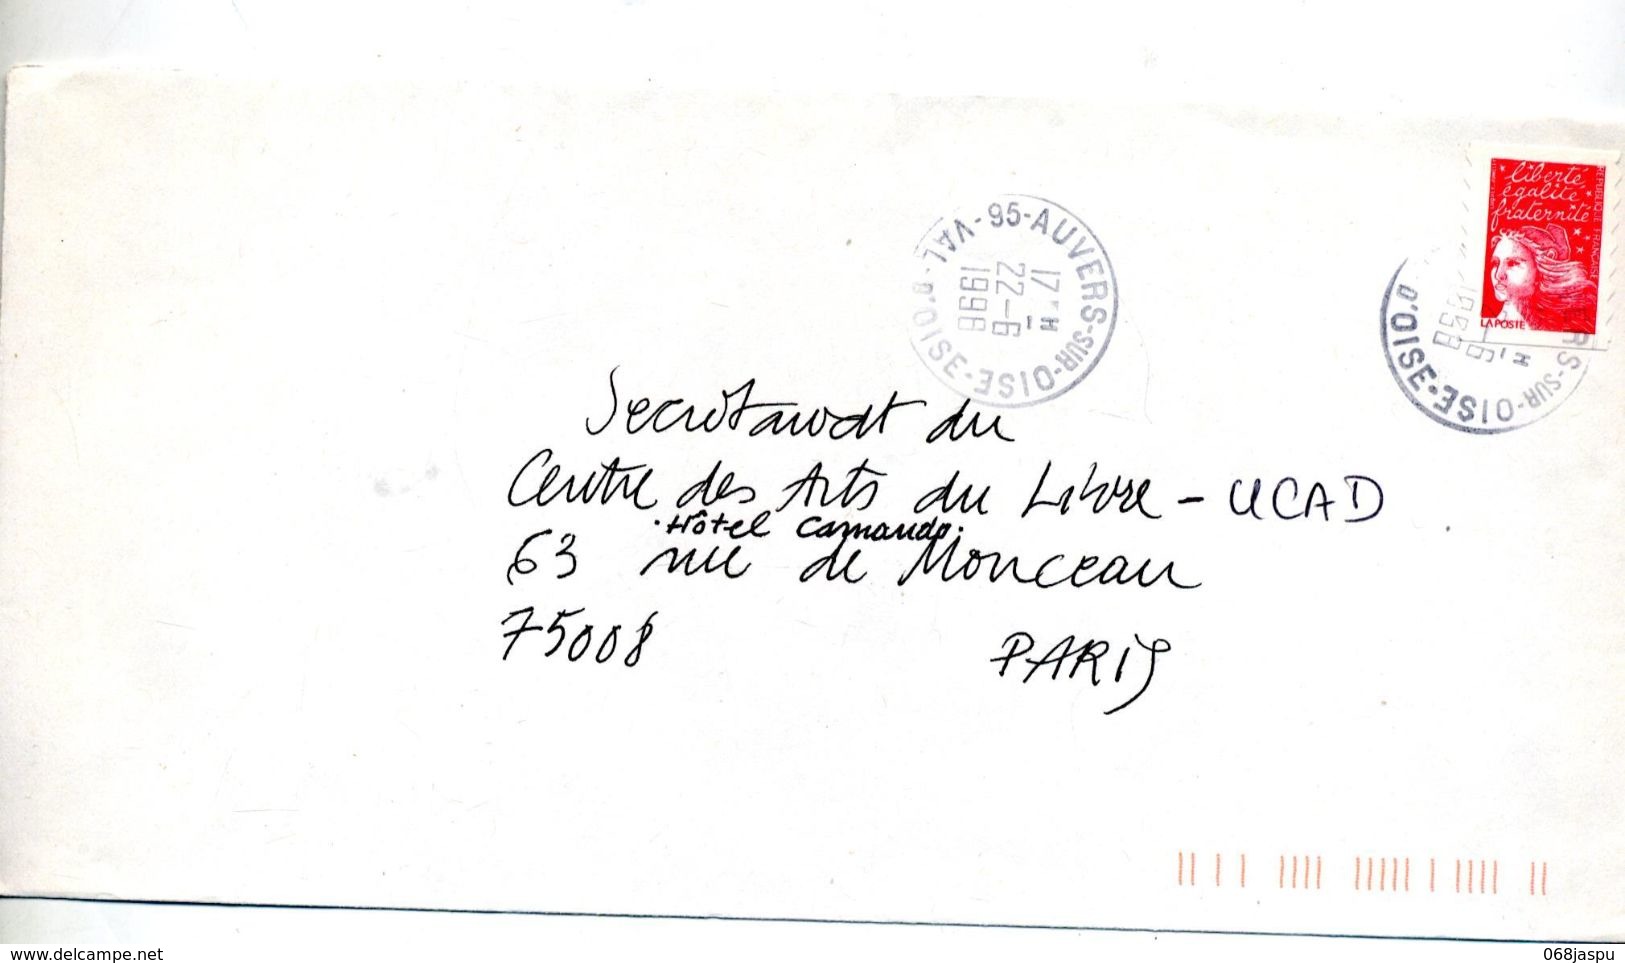 liberté
égalité
fraternité
RÉPUBLIQUE FRANÇAISE
LA POSTE
95-AUVERS-SUR-OISE-VAL-D'OISE
17H
22-6
1998
D'OISE
RS-SUR-OISE
H
6
1998
Secrétariat du
Centre des Arts du Livre - UCAD
Hôtel Camando.
63 rue de Monceau
75008 PARIS
www.delcampe.net
068jaspu